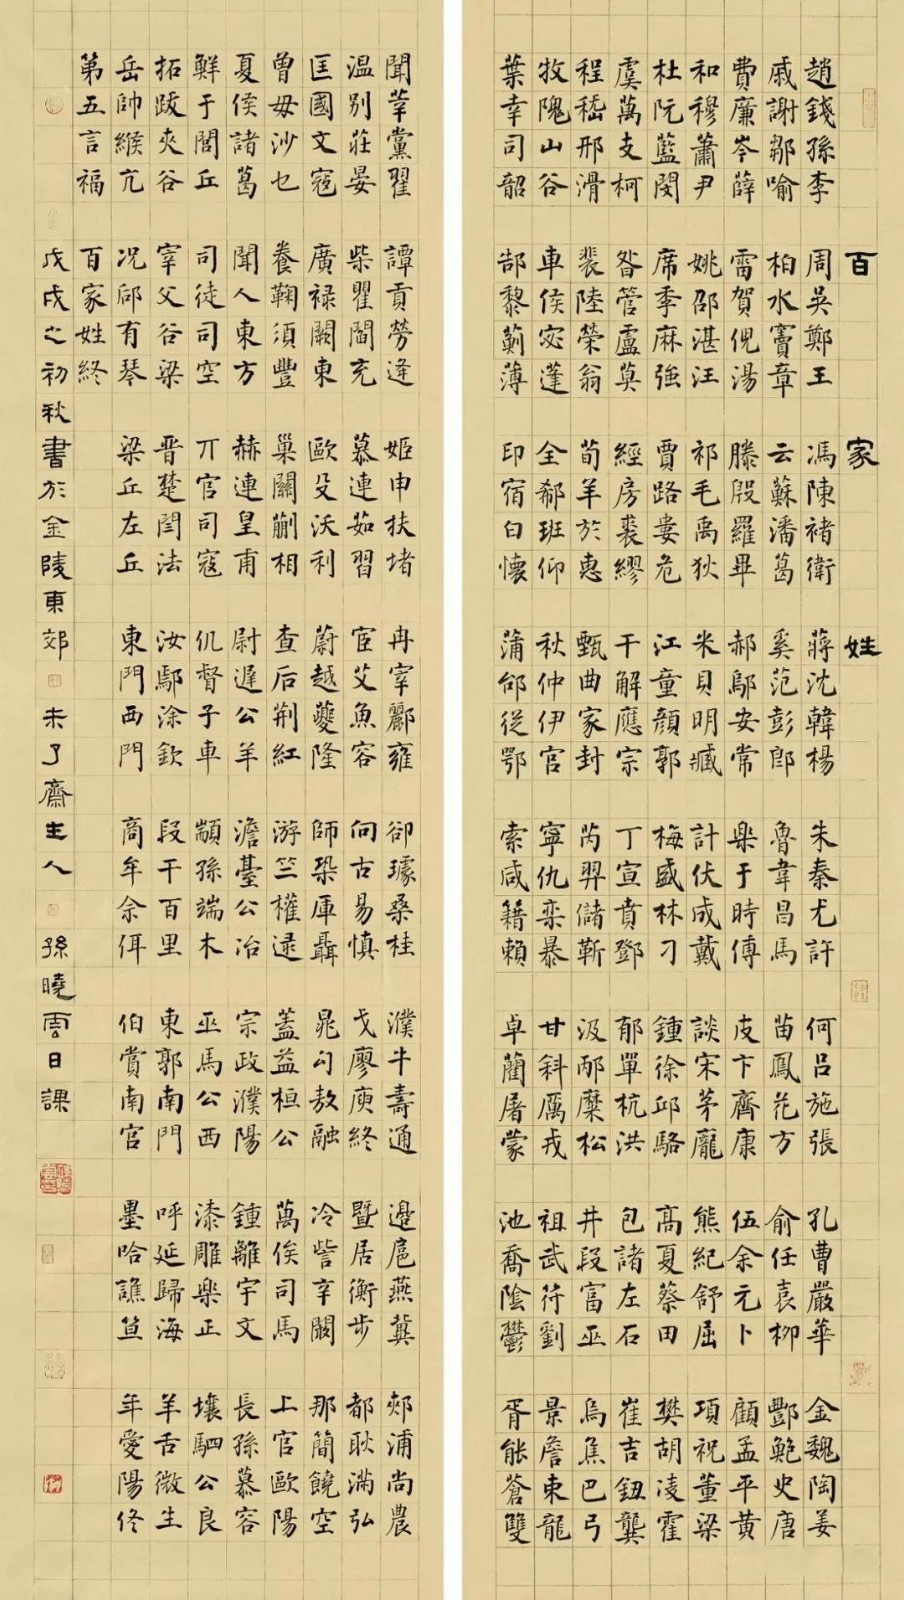 百家姓
趙錢孫李 周吳鄭王 馮陳褚衛 蔣沈韓楊 朱秦尤許 何呂施張 孔曹嚴華 金魏陶姜
戚謝鄒喻 柏水竇章 云蘇潘葛 奚范彭郎 魯韋昌馬 苗鳳花方 俞任袁柳 酆鮑史唐
費廉岑薛 雷賀倪湯 滕殷羅畢 郝鄔安常 樂于時傅 皮卞齊康 伍余元卜 顧孟平黃
和穆蕭尹 姚邵湛汪 祁毛禹狄 米貝明臧 計伏成戴 談宋茅龐 熊紀舒屈 項祝董梁
杜阮藍閔 席季麻強 賈路婁危 江童顏郭 梅盛林刁 鍾徐邱駱 高夏蔡田 樊胡凌霍
虞萬支柯 昝管盧莫 經房裘繆 干解應宗 丁宣賁鄧 郁單杭洪 包諸左石 崔吉鈕龔
程嵇邢滑 裴陸榮翁 荀羊於惠 甄曲家封 芮羿儲靳 汲邴糜松 井段富巫 烏焦巴弓
牧隗山谷 車侯宓蓬 全郗班仰 秋仲伊宮 寧仇欒暴 甘斜厲戎 祖武符劉 景詹束龍
葉幸司韶 郜黎薊薄 印宿白懷 蒲邰從鄂 索咸籍賴 卓藺屠蒙 池喬陰鬱 胥能蒼雙
聞莘黨翟 譚貢勞逄 姬申扶堵 冉宰酈雍 卻璩桑桂 濮牛壽通 邊扈燕冀 郟浦尚農
温別莊晏 柴瞿閻充 慕連茹習 宦艾魚容 向古易慎 戈廖庾終 暨居衡步 都耿滿弘
匡國文寇 廣祿闕東 歐殳沃利 蔚越夔隆 師鞏厙聶 晁勾敖融 冷訾辛闞 那簡饒空
曾毋沙乜 養鞠須豐 巢關蒯相 查后荊紅 游竺權逯 蓋益桓公 萬俟司馬 上官歐陽
夏侯諸葛 聞人東方 赫連皇甫 尉遲公羊 澹臺公冶 宗政濮陽 鍾離宇文 長孫慕容
鮮于閭丘 司徒司空 亓官司寇 仉督子車 顓孫端木 巫馬公西 漆雕樂正 壤駟公良
拓跋夾谷 宰父谷梁 晋楚閆法 汝鄢涂欽 段干百里 東郭南門 呼延歸海 羊舌微生
岳帥緱亢 況郈有琴 梁丘左丘 東門西門 商牟佘佴 伯賞南宮 墨哈譙笪 年愛陽佟
第五言福 百家姓終
戊戌之初秋書於金陵東郊未了齋主人孫曉雲日課